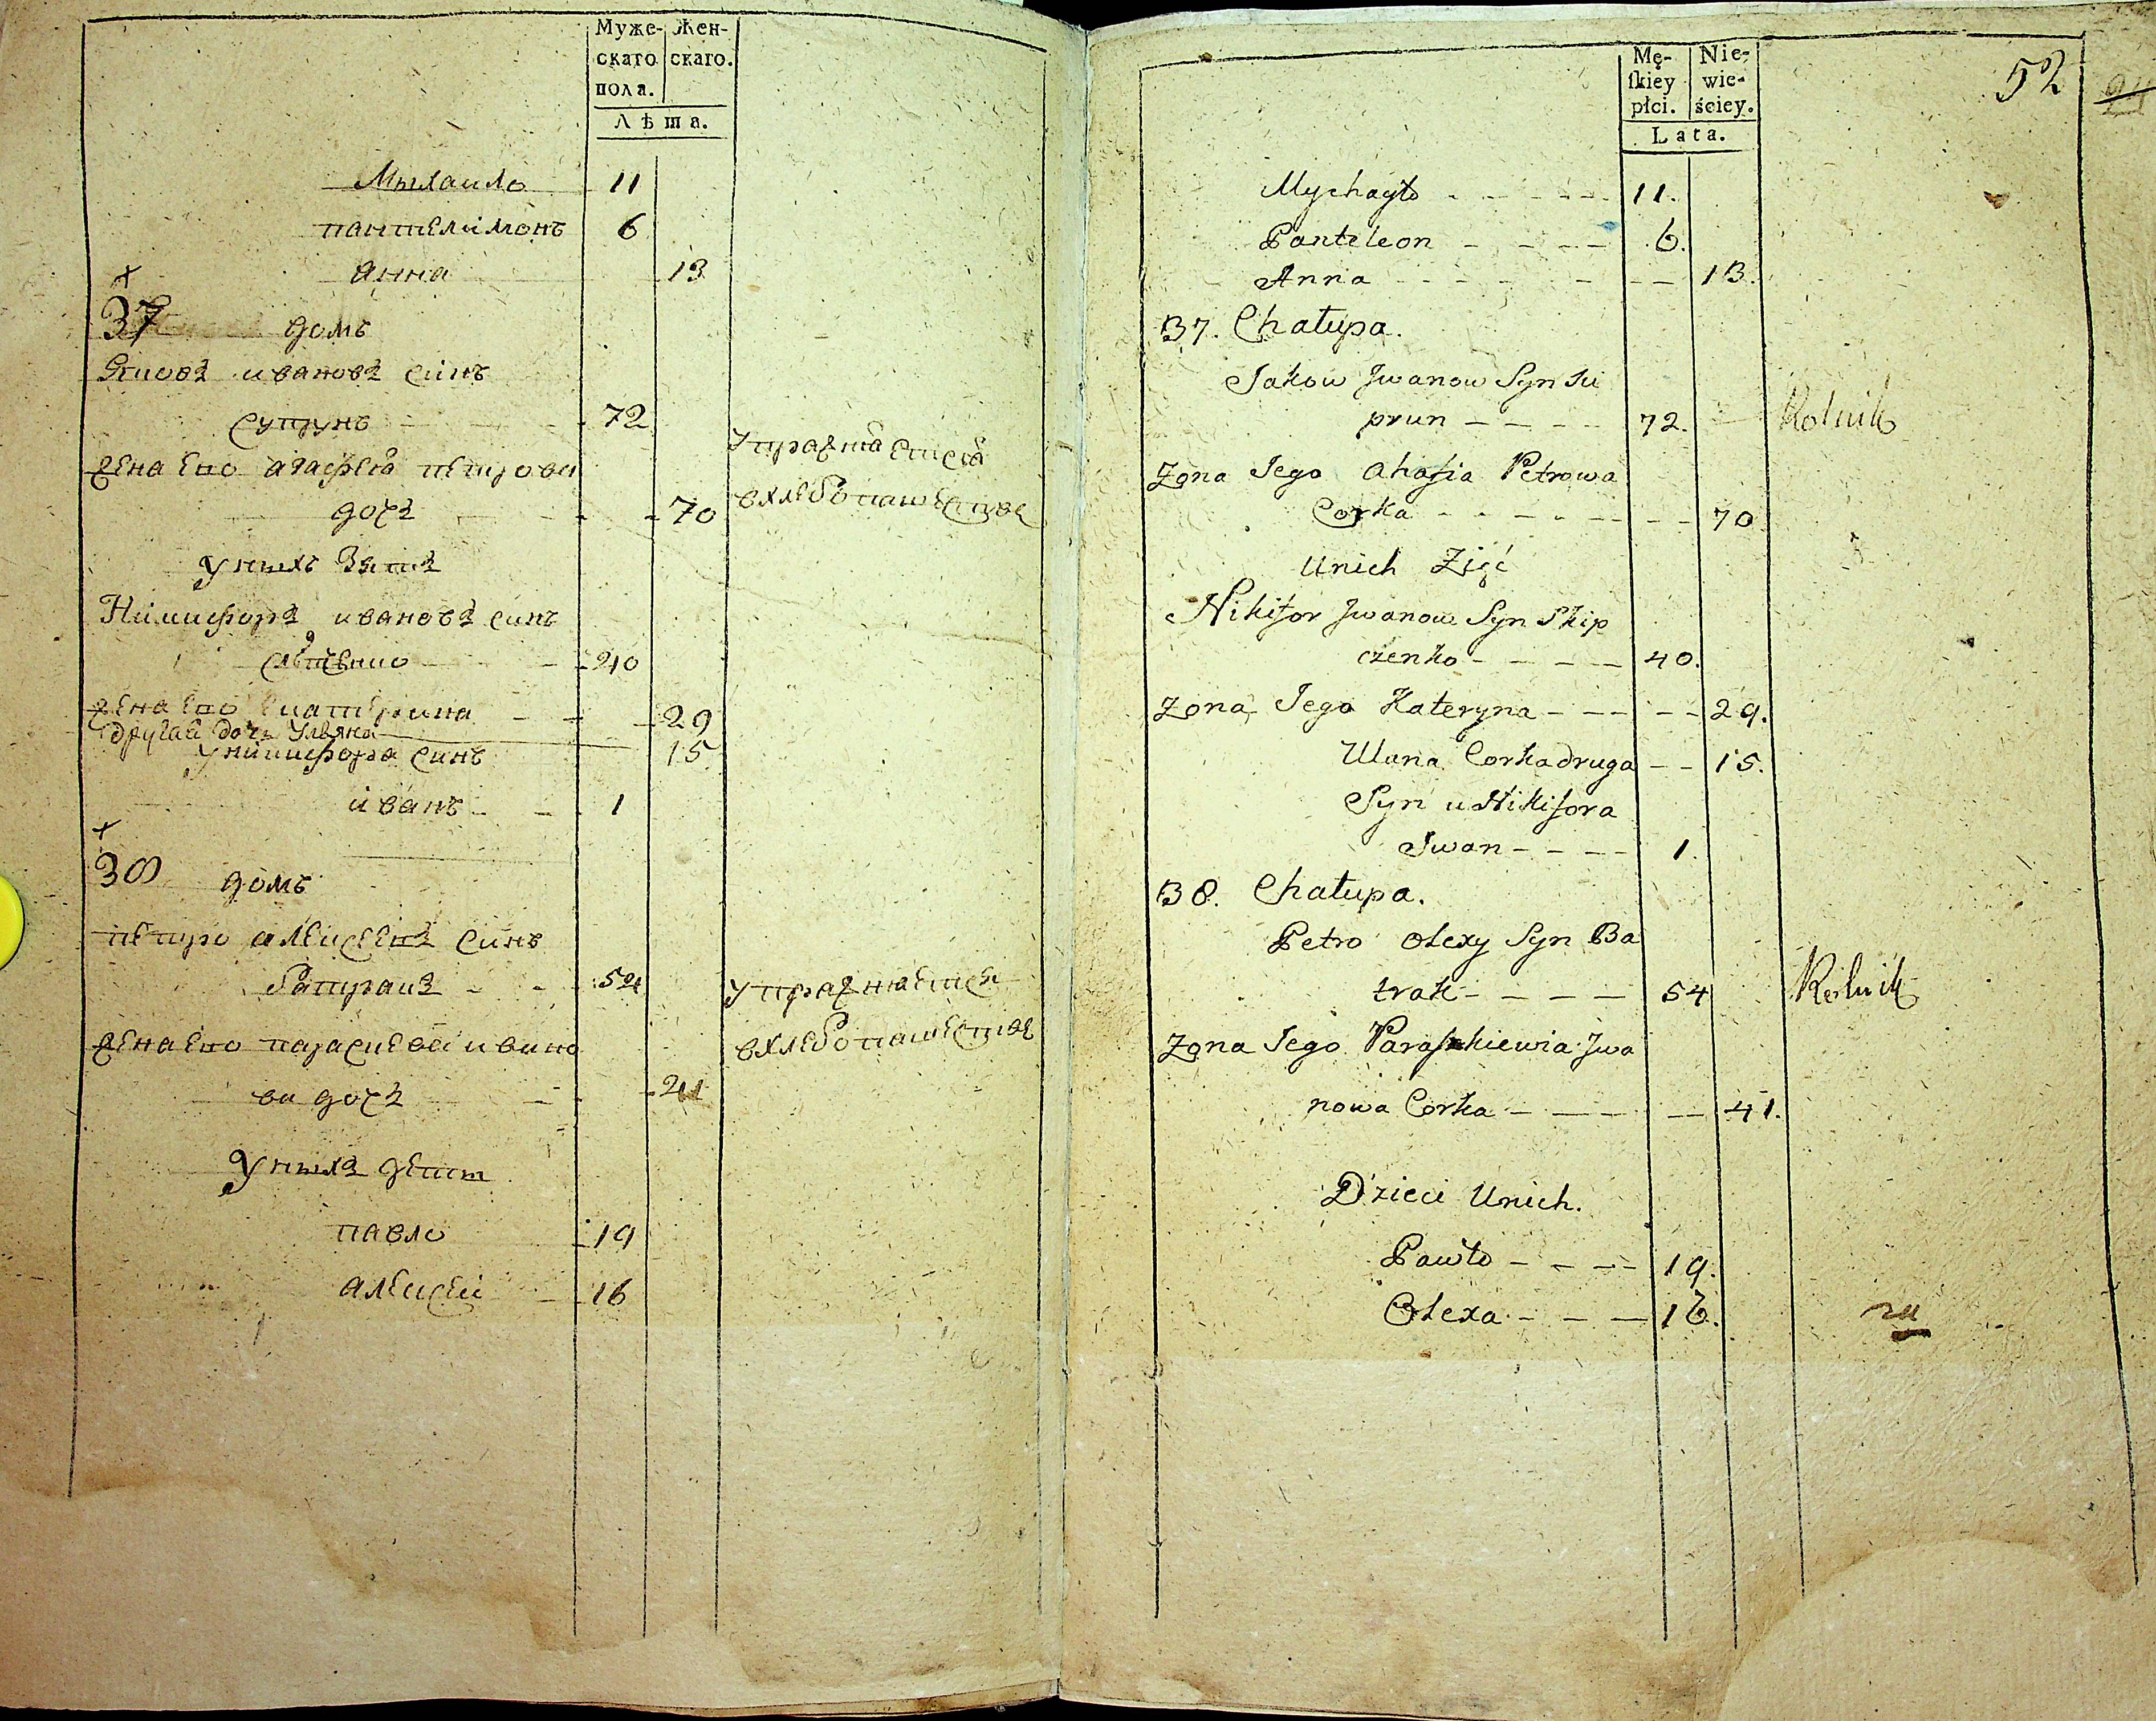 Муже-
скаго
пола.
Жен-
скаго.
Лѣта.
Михаило 11
пантелимонъ 6
анна 13
37 домъ
Яковъ ивановъ синъ
Супрунъ 72
жена Его агафія петрова
дочъ 70
упражняется
вхлебопашестве
унихъ Зять
Никифоръ ивановъ синъ
40
жена Его катерина 29
другая дочь Уляна 15
уникифора синъ
иванъ 1
38 домъ
петро алексеевъ синъ
батракъ 54
упражняется
вхлебопашестве
жена Его параскевея ивано
ва дочъ 41
унихъ дети
павло 19
алексеи 16
52
Mę-
ſkiey
płci.
Nie-
wie-
ściey.
Lata.
Mychayło 11.
Panteleon 6.
Anna 13.
37. Chałupa.
Jakow Jwanow Syn Su
prun 72. Rolnik
Zona Jego Ahafia Petrowa
Corka 70.
Unich Zięć
Nikifor Jwanow Syn Skip
czenko 40.
Zona Jego Kateryna 29.
Ulana Corka druga 15.
Syn u Nikifora
Jwan 1.
38. Chałupa.
Petro Olexy Syn Ba
trak 54 Rolnik
Zona Jego Paraszkiewia Jwa
nowa Corka 41.
Dzieci Unich.
Pawło 19.
Olexa 16.